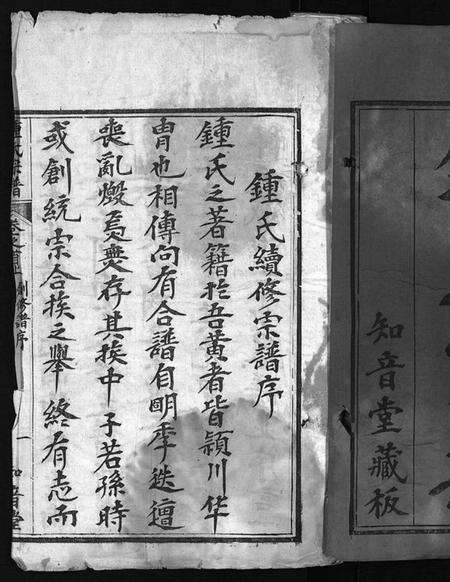 知音堂藏板
鍾氏續修宗譜序
鍾氏之著籍於吾黃者皆潁川华
胄也相傳向有合譜自明季迭遭
喪亂燬焉無存其族中子若孫時
或創統宗合族之舉終有志而
卷之首
創修譜序
一
知音堂